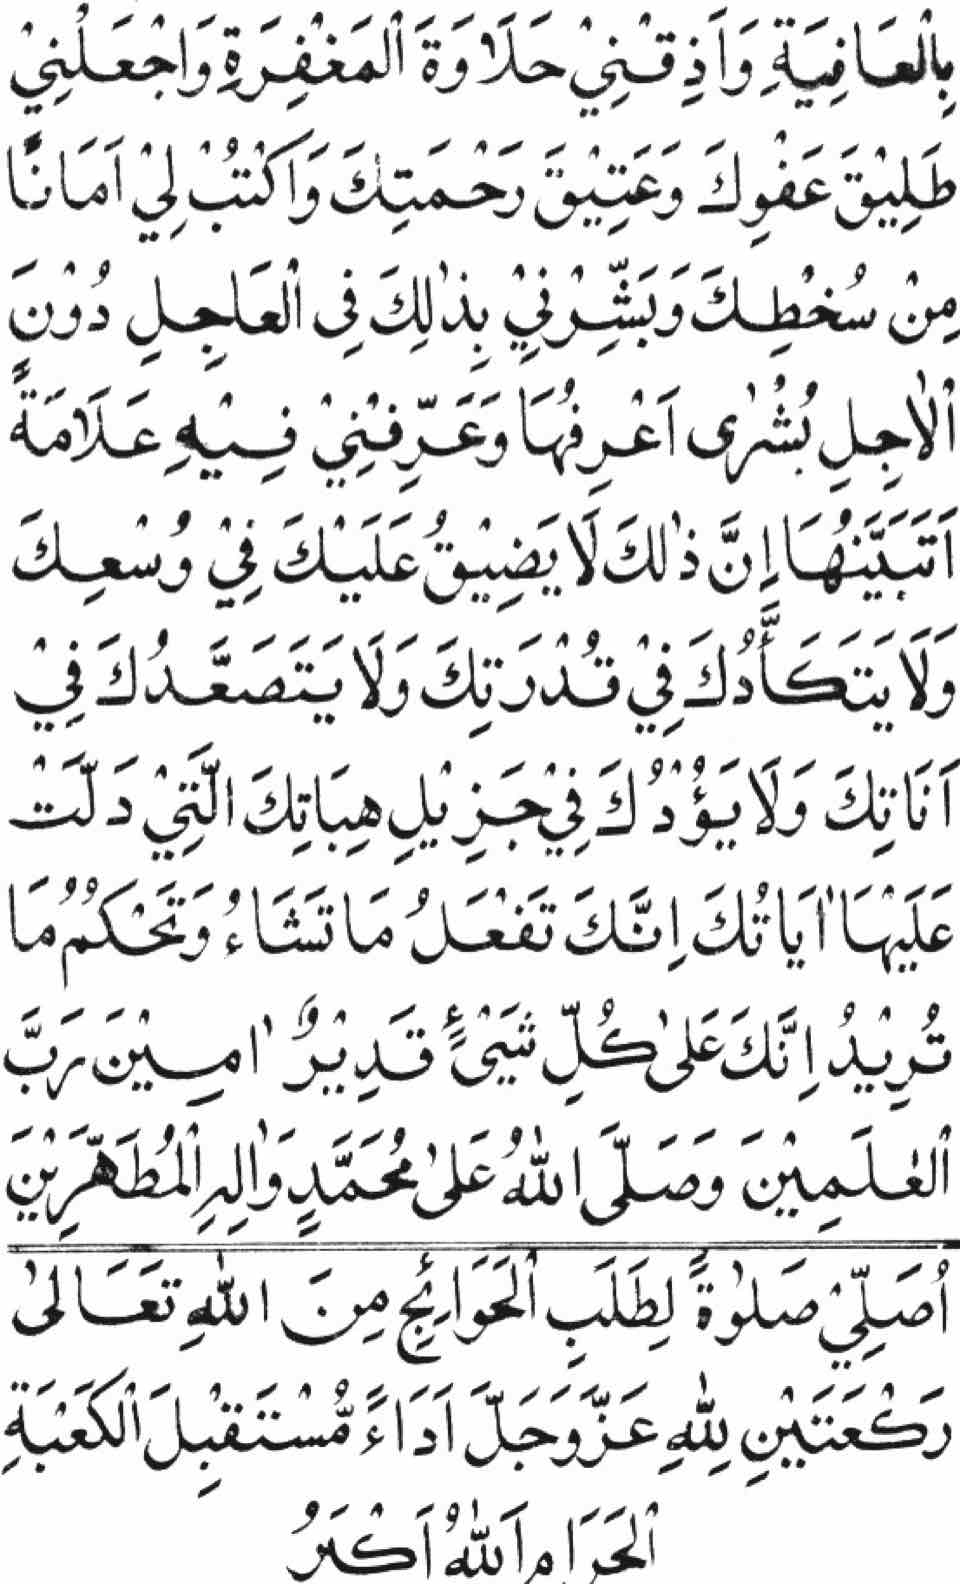 بِالْعَافِيَةِ وَاَذِقْنِيْ حَلَاوَةَ الْمَغْفِرَةِ وَاجْعَلْنِيْ
طَلِيْقَ عَفْوِكَ وَعَتِيْقَ رَحْمَتِكَ وَاكْتُبْ لِيْ اَمَانًا
مِنْ سُخْطِكَ وَبَشِّرْنِيْ بِذٰلِكَ فِى الْعَاجِلِ دُوْنَ
الْاٰجِلِ بُشْرٰى اَعْرِفُهَا وَعَرِّفْنِيْ فِيْهِ عَلَامَةً
اَتَبَيَّنُهَا اِنَّ ذٰلِكَ لَا يَضِيْقُ عَلَيْكَ فِيْ وُسْعِكَ
وَلَا يَتَكَأَّدُكَ فِيْ قُدْرَتِكَ وَلَا يَتَصَعَّدُكَ فِيْ
اَنَاتِكَ وَلَا يَؤُدُكَ فِيْ جَزِيْلِ هِبَاتِكَ الَّتِيْ دَلَّتْ
عَلَيْهَا اٰيَاتُكَ اِنَّكَ تَفْعَلُ مَا تَشَاءُ وَتَحْكُمُ مَا
تُرِيْدُ اِنَّكَ عَلٰى كُلِّ شَيْئٍ قَدِيْرٌ اٰمِيْنَ رَبَّ
الْعٰلَمِيْنَ وَصَلَّى اللّٰهُ عَلٰى مُحَمَّدٍ وَاٰلِهِ الْمُطَهَّرِيْنَ
اُصَلِّيْ صَلٰوةً لِطَلَبِ الْحَوَائِجِ مِنَ اللّٰهِ تَعَالٰى
رَكْعَتَيْنِ لِلّٰهِ عَزَّ وَجَلَّ اَدَاءً مُّسْتَقْبِلَ الْكَعْبَةِ
الْحَرَامِ اَللّٰهُ اَكْبَرُ